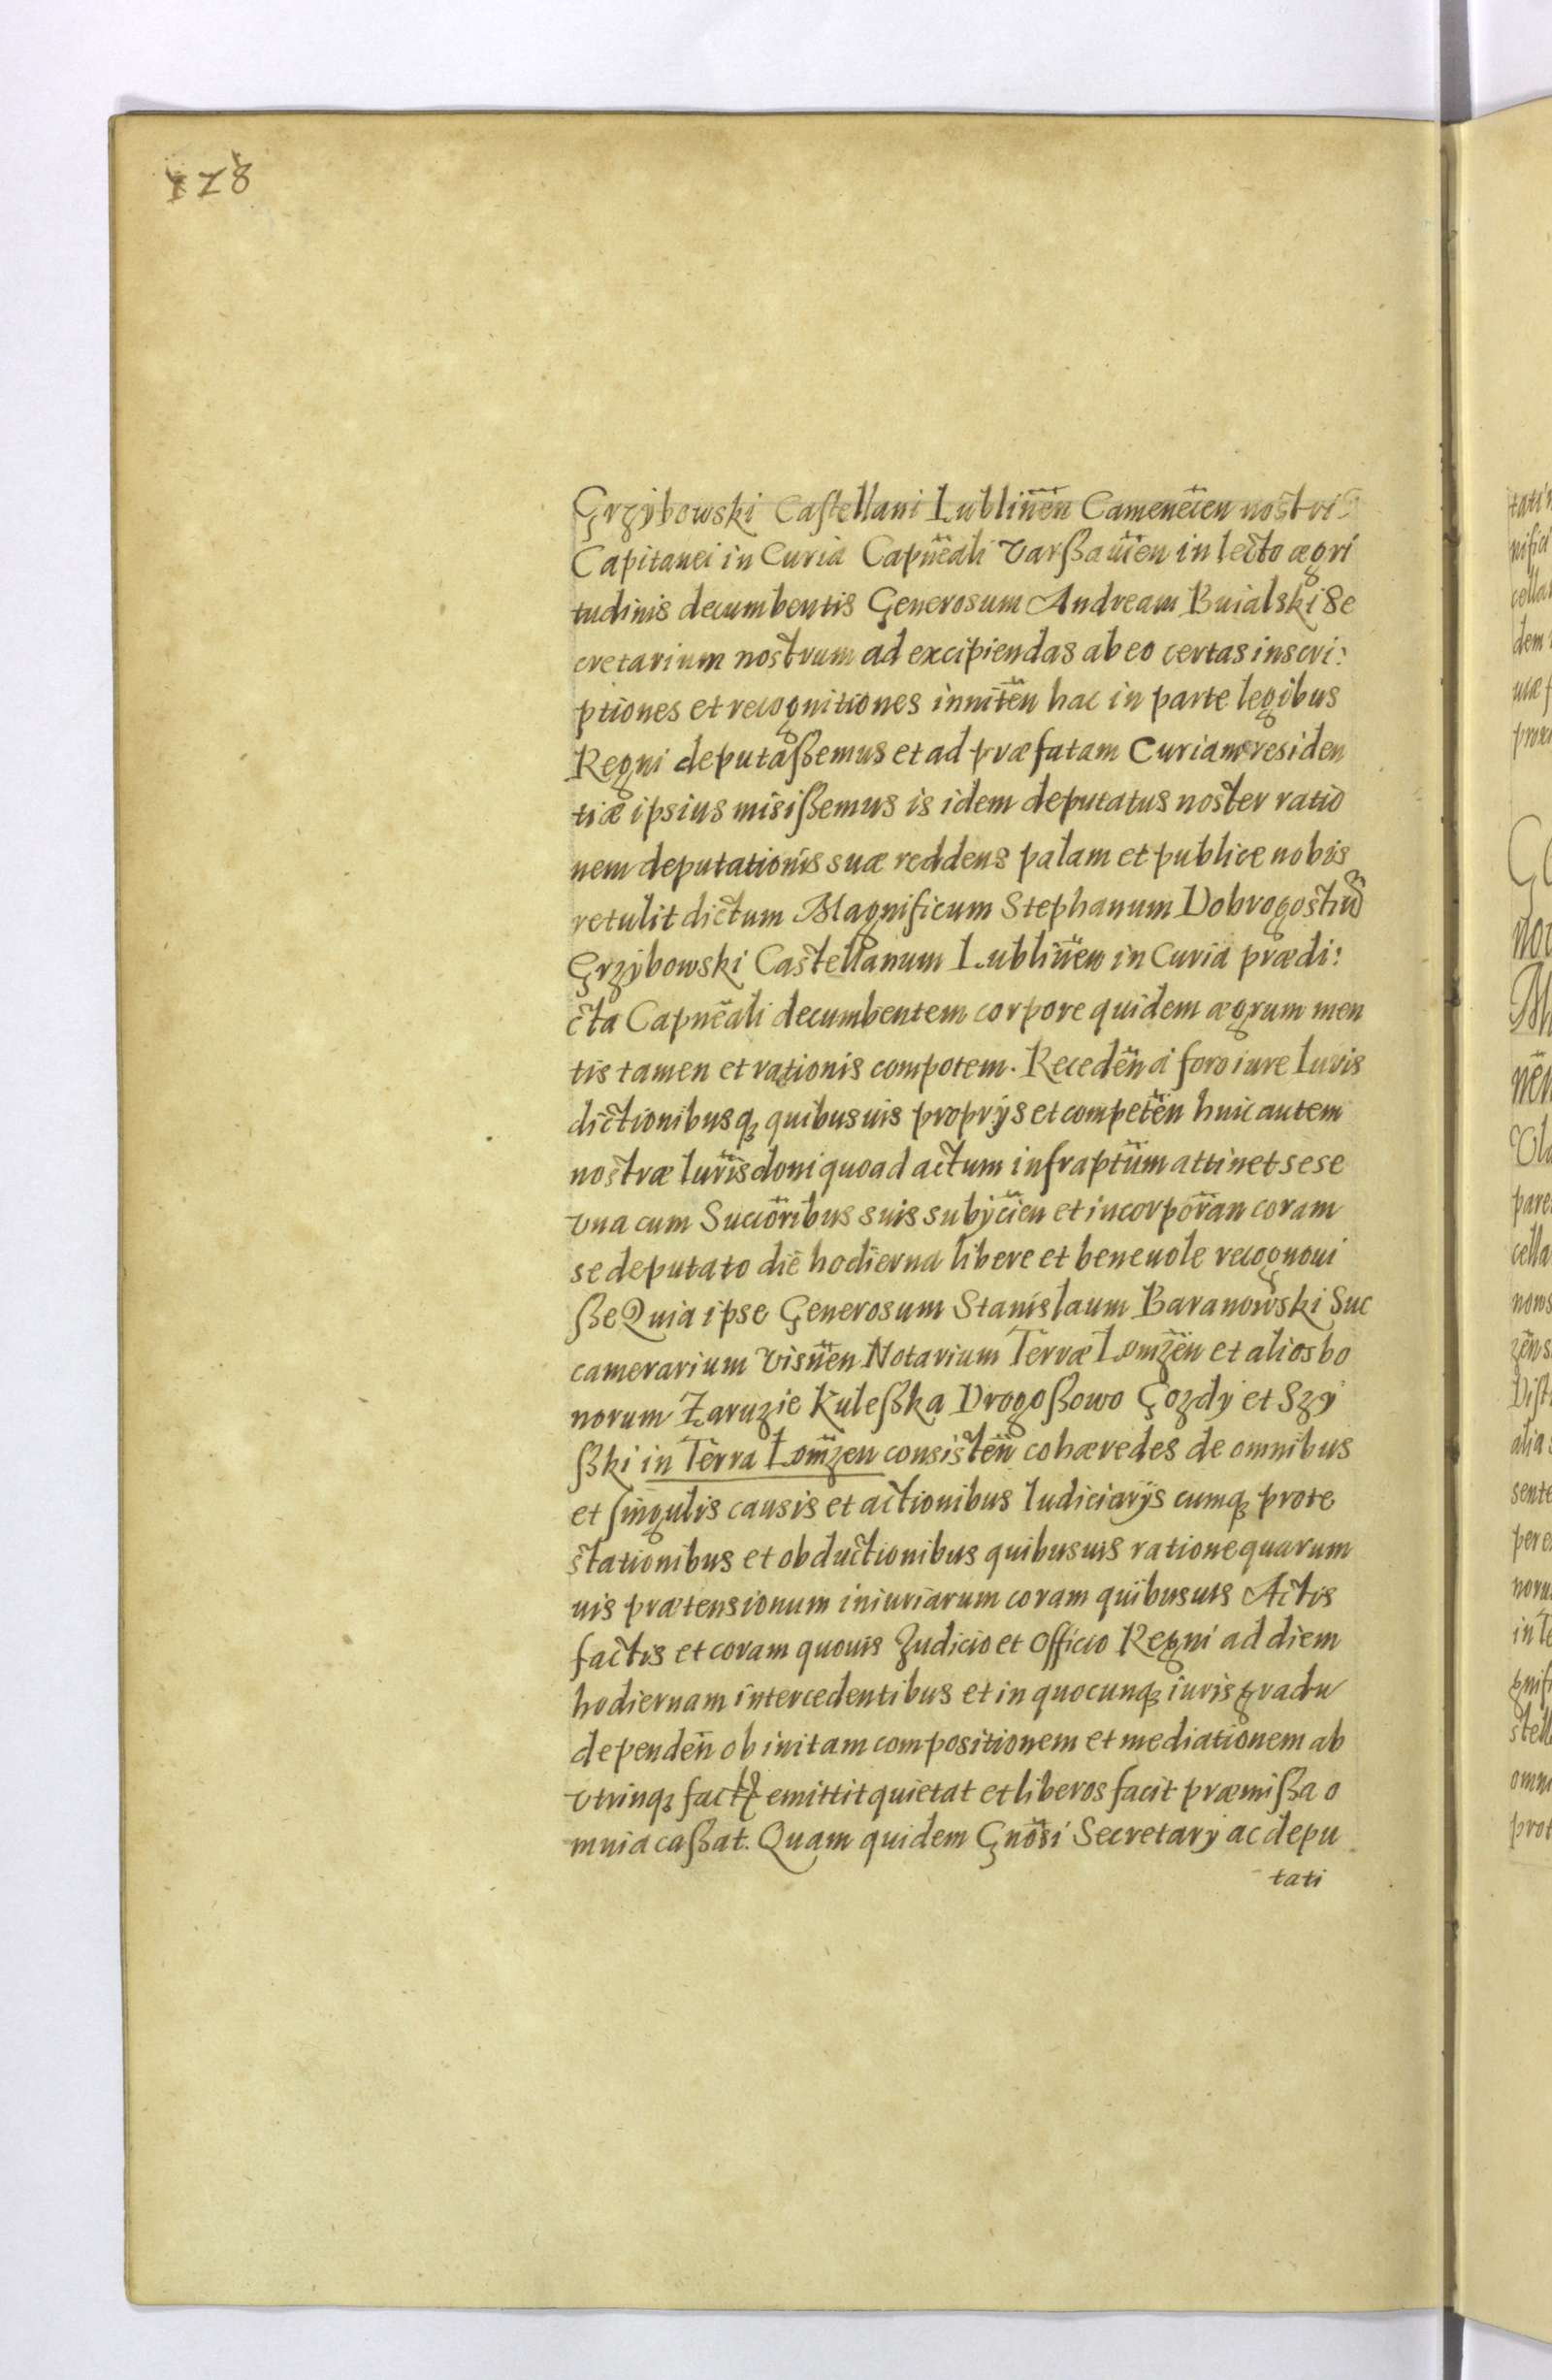 128
Grzybowski Castellani Lublinen̄ Camenecen̄ nostri
Capitanei in Curia Capn̄eali Varßauien̄ in lecto ægri
tudinis decumbentis Generosum Andream Buialski Se
cretarium nostrum ad excipiendas ab eo certas inscri:
ptiones et recognitiones inniten̄ hac in parte legibus
Regni deputaßemus et ad præfatam Curiam residen
tiæ ipsius misißemus is idem deputatus noster ratio
nem deputationis suæ reddens palam et publice nobis
retulit dictum Magnificum Stephanum Dobrogostiu̅
Grzybowski Castellanum Lublinen̄ in Curia prædi:
cta Capn̄eali decumbentem corpore quidem ægrum men
tis tamen et rationis compotem. Receden̄ a foro iure Iuris
dictionibusq; quibusuis proprijs et competen̄ huic autem
nostræ Iurisdoni quoad actum infraptum̄ attinet sese
vna cum Succōribus suis subijcien̄ et incorporan̄ coram
se deputato die hodierna libere et beneuole recognoui
ße Quia ipse Generosum Stanislaum Baranowski Suc
camerarium Visnen̄ Notarium Terræ Łomzen̄ et alios bo
norum Zaruzie Kuleßka Drogoßowo Gozdy et Szy
ßki in Terra Łomzen̄ consisten̄ cohæredes de omnibus
et singulis causis et actionibus Iudiciarijs cumq; prote
stationibus et obductionibus quibusuis ratione quarum
uis prætensionum iniuriarum coram quibusuis Actis
factis et coram quouis Iudicio et Officio Regni ad diem
hodiernam intercedentibus et in quocunq; iuris gradu
dependen̄ ob initam compositionem et mediationem ab
vtrinq; emittit quietat et liberos facit præmißa o
mnia caßat. Quam quidem Gn̄osi Secretarij ac depu
tati